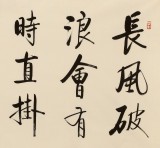 長風破
浪會有
時直掛